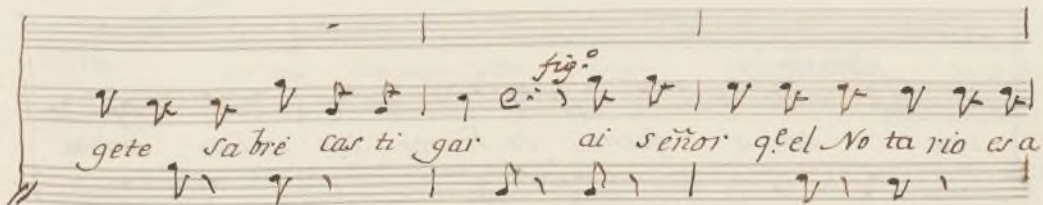 fig.º
gete sabré cas ti gar ai señor q.e el No ta rio es a